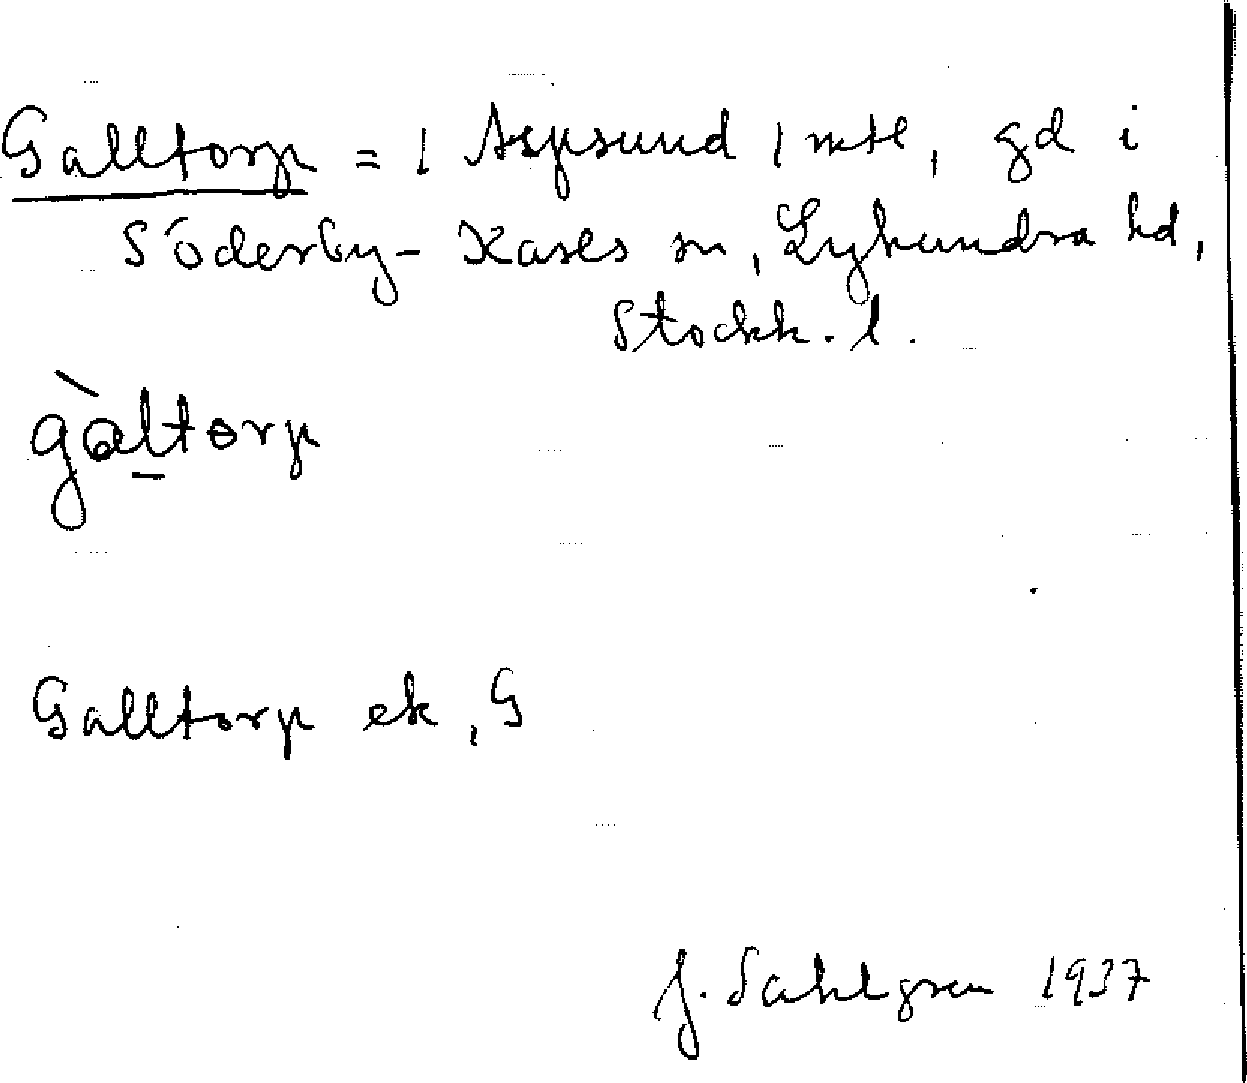 Galltorp = 1 Aspsund 1 mtl, gd i
Söderby-Karls sn, Lyhundra hd,
Stockh. l.
gàltorp
Galltorp ek, G
J. Sahlgren 1937